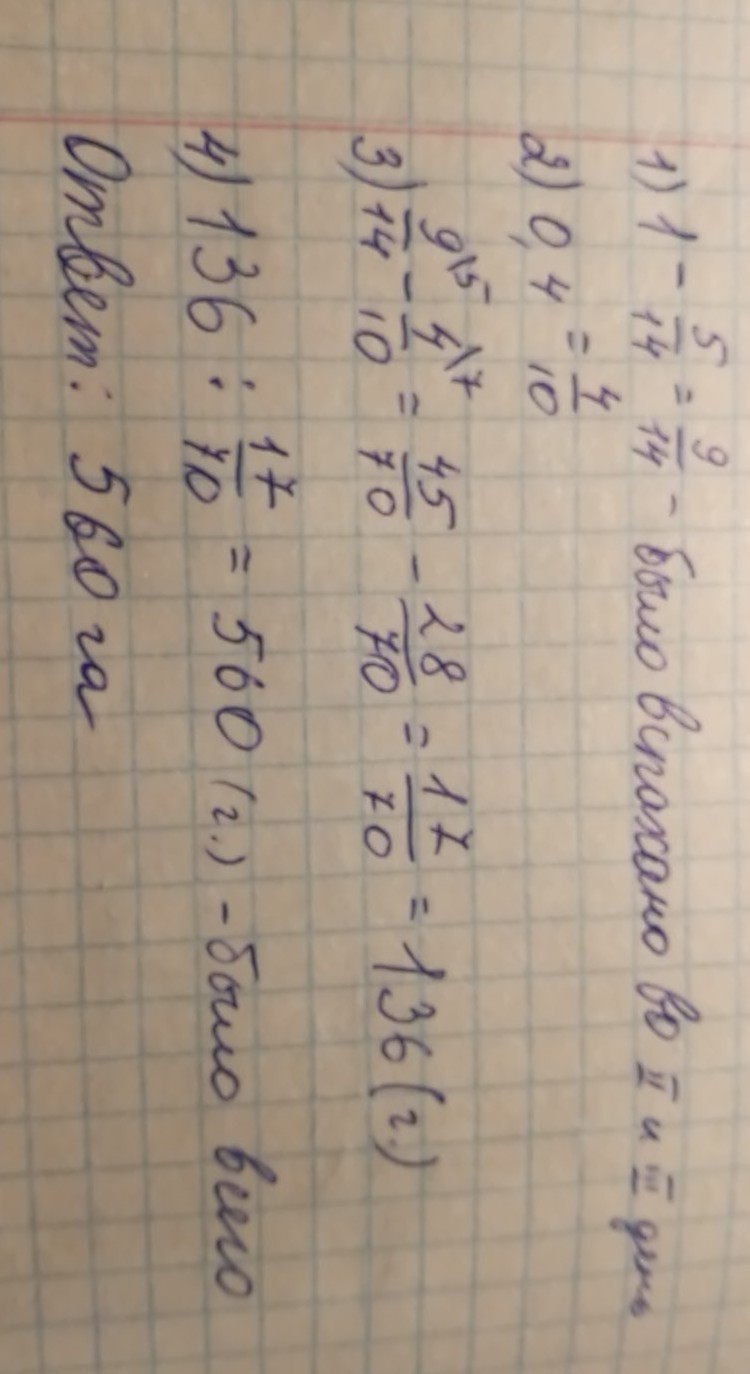 1) 1 - 5/14 = 9/14 - было вспахано во II и III день
2) 0,4 = 4/10
3) 9\5/14 - 4\7/10 = 45/70 - 28/70 = 17/70 = 136 (г.)
4) 136 : 17/70 = 560 (г.) - было всего
Ответ: 560 га